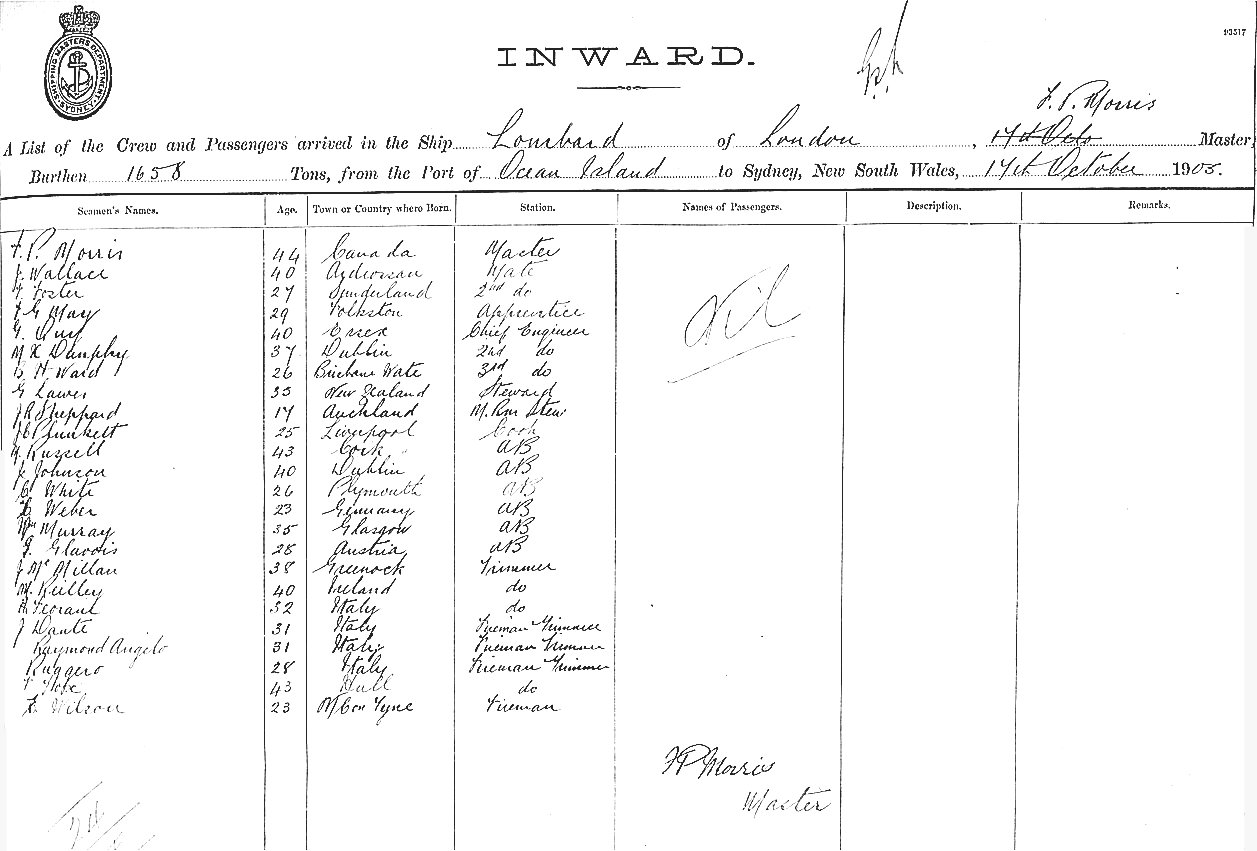 93517
SHIPPING MASTERS DEPARTMENT SYDNEY
INWARD.
F. P. Morris
A List of the Crew and Passengers arrived in the Ship Lombard of London, 17th Octo Master,
Burthen 1658 Tons, from the Port of Ocean Island to Sydney, New South Wales, 17th October 1905.
Seamen's Names. Age. Town or Country where Born. Station. Names of Passengers. Description. Remarks.
F. P. Morris 44 Canada Master
J. Wallace 40 Ardrossan Mate
Foster 27 Sunderland 2nd do
F G May 29 Folkston Apprentice
G. 40 Essex Chief Engineer
M K Dunphy 37 Dublin 2nd do
H Ward 26 Brisbane Wate 3rd do
G Lawes 35 New Zealand Steward
J R Sheppard 17 Auckland M. Rm Stew
J C Plunkett 25 Liverpool Cook
Russell 43 Cork AB
J. Johnson 40 Dublin AB
C White 26 Plymouth AB
Weber 23 Germany AB
Wm Murray 35 Glasgow AB
28 Austria AB
J McMillan 38 Greenock Trimmer
M. Reilley 40 Ireland do
32 Italy do
J Dante 31 Italy Fireman Trimmer
Raymond Angelo 31 Italy Fireman Trimmer
Ruggero 28 Italy Fireman Trimmer
43 Hull do
Wilson 23 Tyne Fireman
Nil
F P Morris
Master